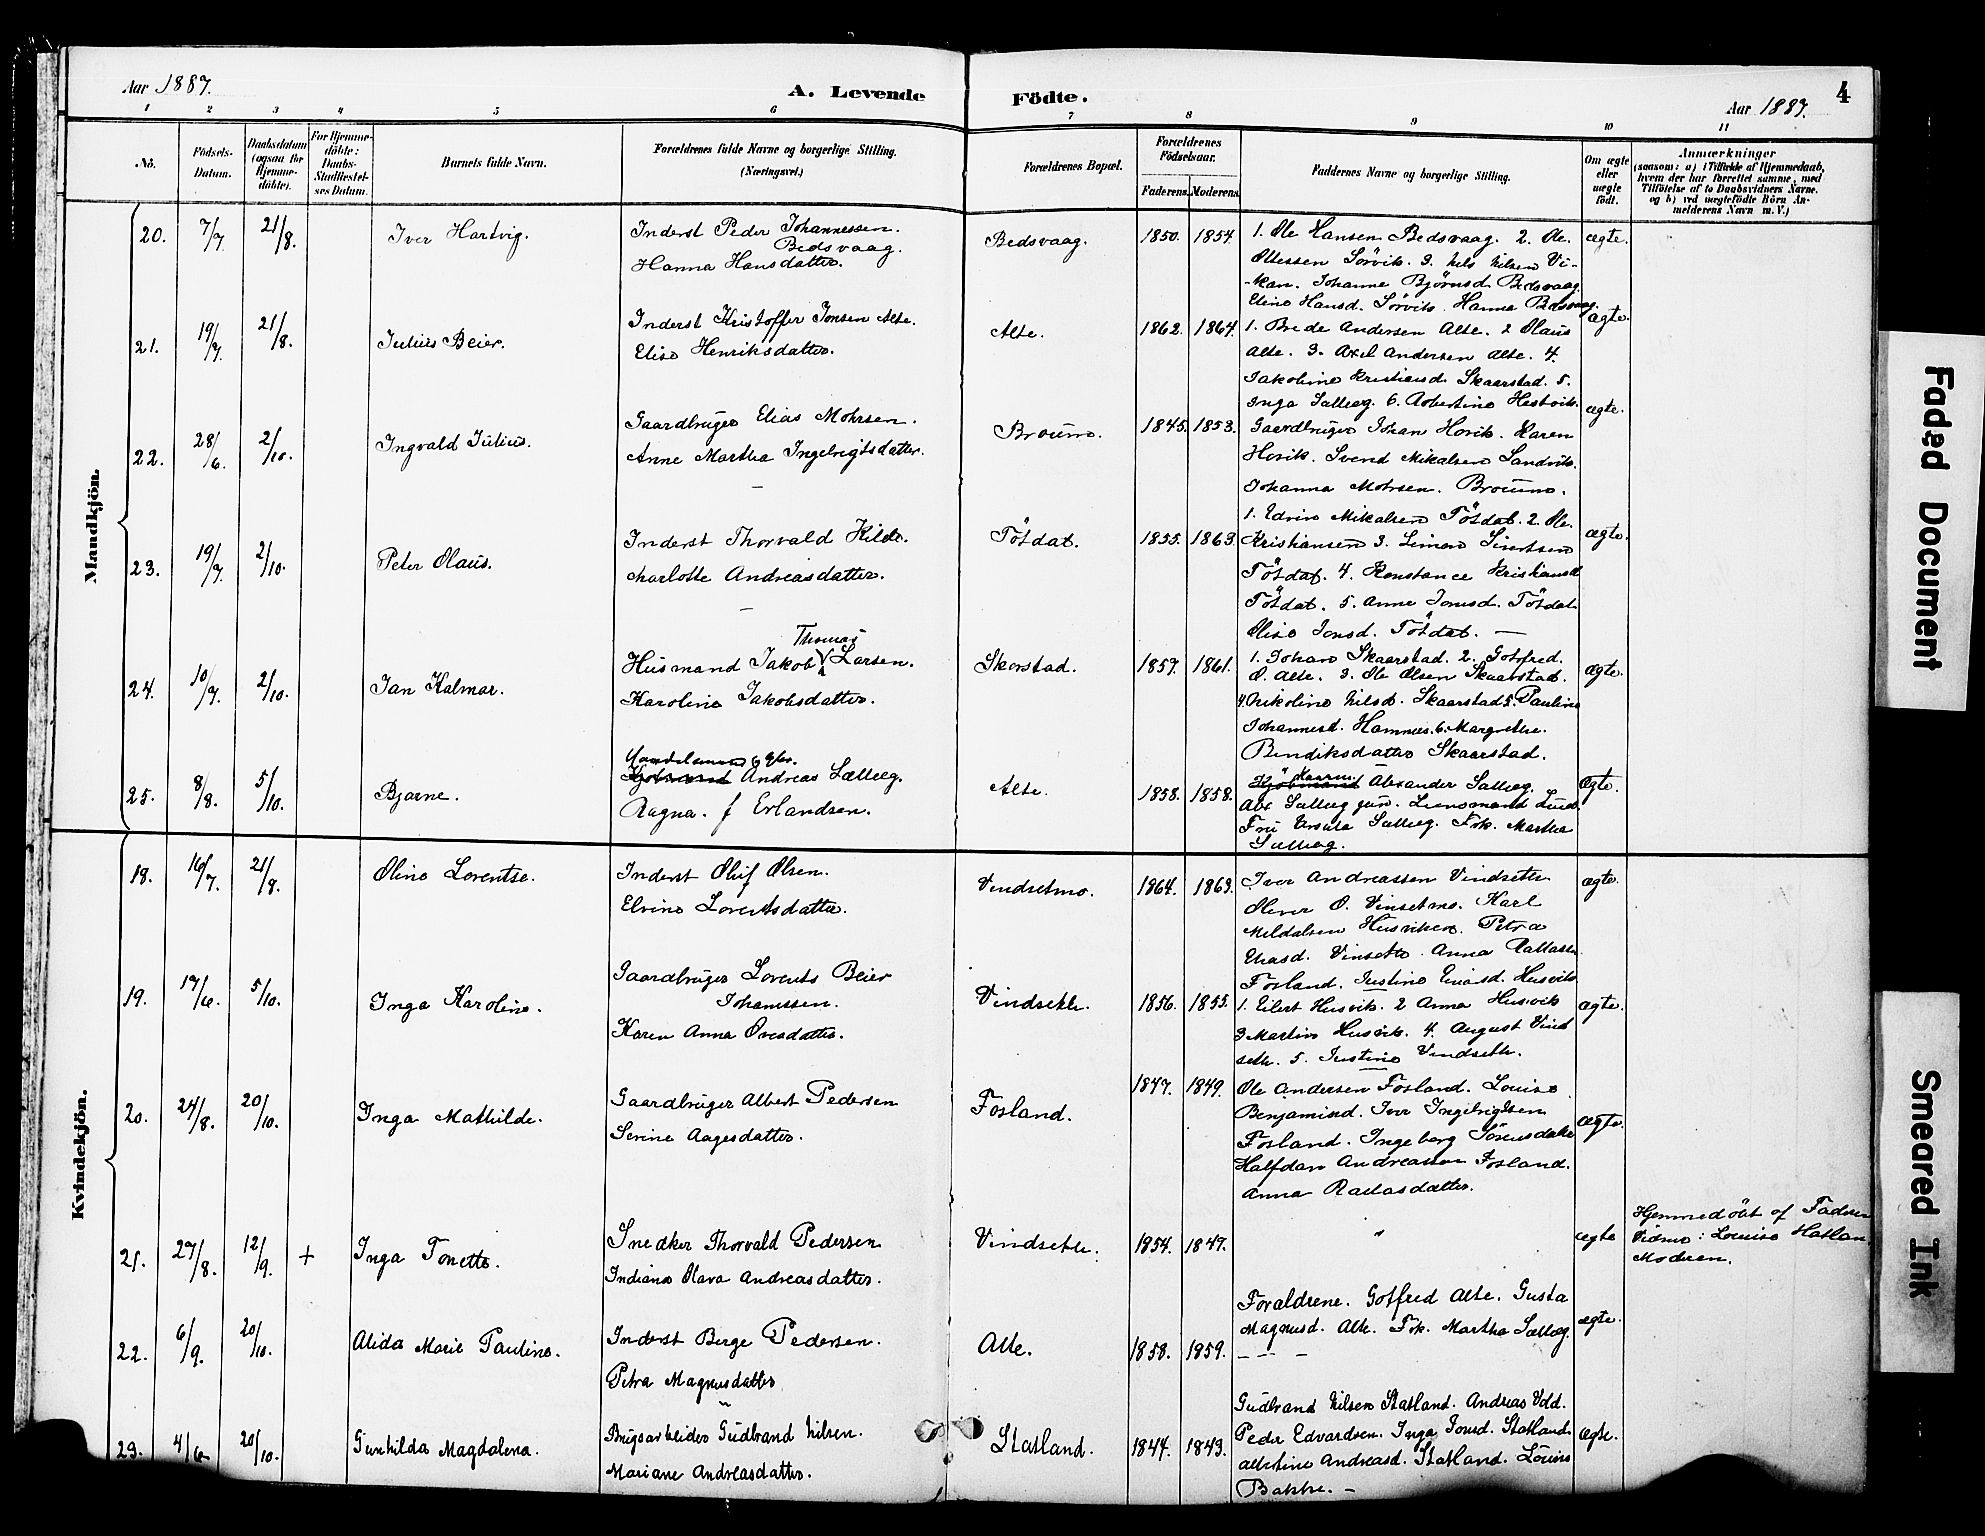 Aar 1887.
A. Levende
Födte.
Aar 1887.
4
1 2 3 4 5 6 7 8 9 10 11
No.
Födsels-
Datum.
Daabsdatum
(ogsaa for
Hjemme-
döbte).
For Hjemme-
döbte:
Daabs-
Stadfæstel-
ses Datum.
Barnets fulde Navn.
Forældrenes fulde Navne og borgerlige Stilling.
(Næringsvei.)
Forældrenes Bopæl.
Forældrenes
Födselsaar.
Faderens. Moderens.
Faddernes Navne og borgerlige Stilling.
Om ægte
eller
uægte
födt.
Anmærkninger
(saasom: a) i Tilfælde af Hjemmedaab,
hvem der har forrettet samme, med
Tilföielse af to Daabsvidners Navne.
og b) ved uægtefödte Börn An-
melderens Navn m. V.)
Mandkjön.
20. 7/7 21/8. Iver Hartvig.
Inderst Peder Johannessen.
Bedsvaag.
Hanna Hansdatter.
Bedsvaag. 1850. 1854.
1. Ole Hansen Bedsvaag. 2. Ole
Ottessen Sörvik. 3. Nels Nilsen Vi-
-kan. Johanne Björnsd. Bedsvaag.
Eline Hansd. Sörvik. Hanna Bedsvaag.
ægte.
21. 19/7 21/8. Julius Beier.
Inderst Kristoffer Jonsen Alte.
Elise Henriksdatter.
Alte. 1862. 1864.
1. Brede Andersen Alte. 2 Olaus
Alte. 3. Axel Andersen Alte. 4.
Jakobine Kristiansd. Skaarstad. 5.
Inga Sælleg. 6. Albertine Hestvik.
ægte.
22. 28/6. 2/10. Ingvald Julius.
Gaardbruger Elias Mohrsen.
Anne Martha Ingebrigtsdatter.
Brouno. 1845. 1853.
Gaardbruger Johan Horik. Karen
Horik. Svend Mikalsen Sandvik.
Johanna Mohrsen. Brouno.
ægte.
23. 19/7 2/10. Peter Olaus.
Inderst Thorvald Kilde.
Charlotte Andreasdatter.
Tötdal. 1855. 1863.
1. Edvin Mikalsen Tötdal. 2. Ole
Kristiansen 3. Simon Sivertsen
Tötdal. 4. Konstance Kristiansd.
Tötdal. 5. Anne Jonsd. Tötdal
Olise Jonsd. Tötdal. —
ægte.
24. 10/7. 2/10. Jan Kalmar.
Thomas
Husmand Jakob Larsen.
Karoline Jakobsdatter.
Skorstad. 1857. 1861.
1. Johan Skaarstad. 2. Gotfred.
O. Alte. 3. Ole Olsen Skaarstad.
4. Nikoline Nilsd. Skaarstad 5. Pauline
Johannesd. Hamnes. 6. Margrethe.
Bendiksdatter Skaarstad.
ægte.
25. 8/8. 5/10. Bjarne.
Handelsmand
Andreas Sælleg.
Ragna. f Erlandsen.
Alte. 1858. 1858.
Kjöbmand Alexander Sælleg.
Alex Sælleg jun. Lensmand Lund
Fru Ursula Sælleg. Frk. Martha
Sælleg.
ægte.
Kvindekjön.
18. 16/7. 21/8. Oline Lorentse.
Inderst Oluf Olsen.
Elvine Lorentsdatter.
Vindsetmo. 1864. 1863.
Iver Andreassen Vindseth
Oliver O. Vinsetmo. Karl
Meldalsen Husviken. Petra
Eliasd. Vinseth. Anna Rallasd.
Fosland. Justine Eliasd. Husvik
ægte.
19. 17/6. 5/10. Inga Karoline.
Gaardbruger Lorents Beier
Johanssen.
Karen Anna Ovesdatter.
Vindseth. 1856. 1855.
1. Eilert Husvik. 2 Anna Husvik
3 Martin Husvik. 4. August Vind
seth. 5. Justine Vindseth.
ægte.
20. 24/8. 20/10. Inga Mathilde.
Gaardbruger Albert Pedersen
Serine Aagesdatter.
Fosland. 1847. 1849.
Ole Andersen Fosland. Louise
Benjaminsd. Iver Ingebrigtsen
Fosland. Ingeborg Sörensdatter
Halfdan Andreassen Fosland.
Anna Rallasdatter.
ægte.
21. 27/8. 12/9. + Inga Tonette.
Snedker Thorvald Pedersen
Indiana Olava Andreasdatter.
Vindseth. 1854. 1847.
"
ægte
Hjemmedöbt af Faderen
Vidne: Louise Hatlan
Moderen.
22. 6/9. 20/10. Alida Marie Pauline.
Inderst Berge Pedersen.
Petra Magnusdatter
Alte. 1858. 1859.
Foraldrene. Gotfred Alte. Gusta
Magnusd. Alte. Frk. Martha Sælleg.
— — —
ægte.
23. 4/6 20/10. Gunhilda Magdalena.
Brugsarbeider Gudbrand Nilsen.
Mariane Andreasdatter.
Statland. 1844. 1843.
Gudbrand Nilsen Statland. Andreas Vold.
Peder Edvardsen. Inga Jonsd. Statland.
Albertine Andreasd. Statland. Louise
Bakke. —
ægte.
Faded Document
Smeared Ink